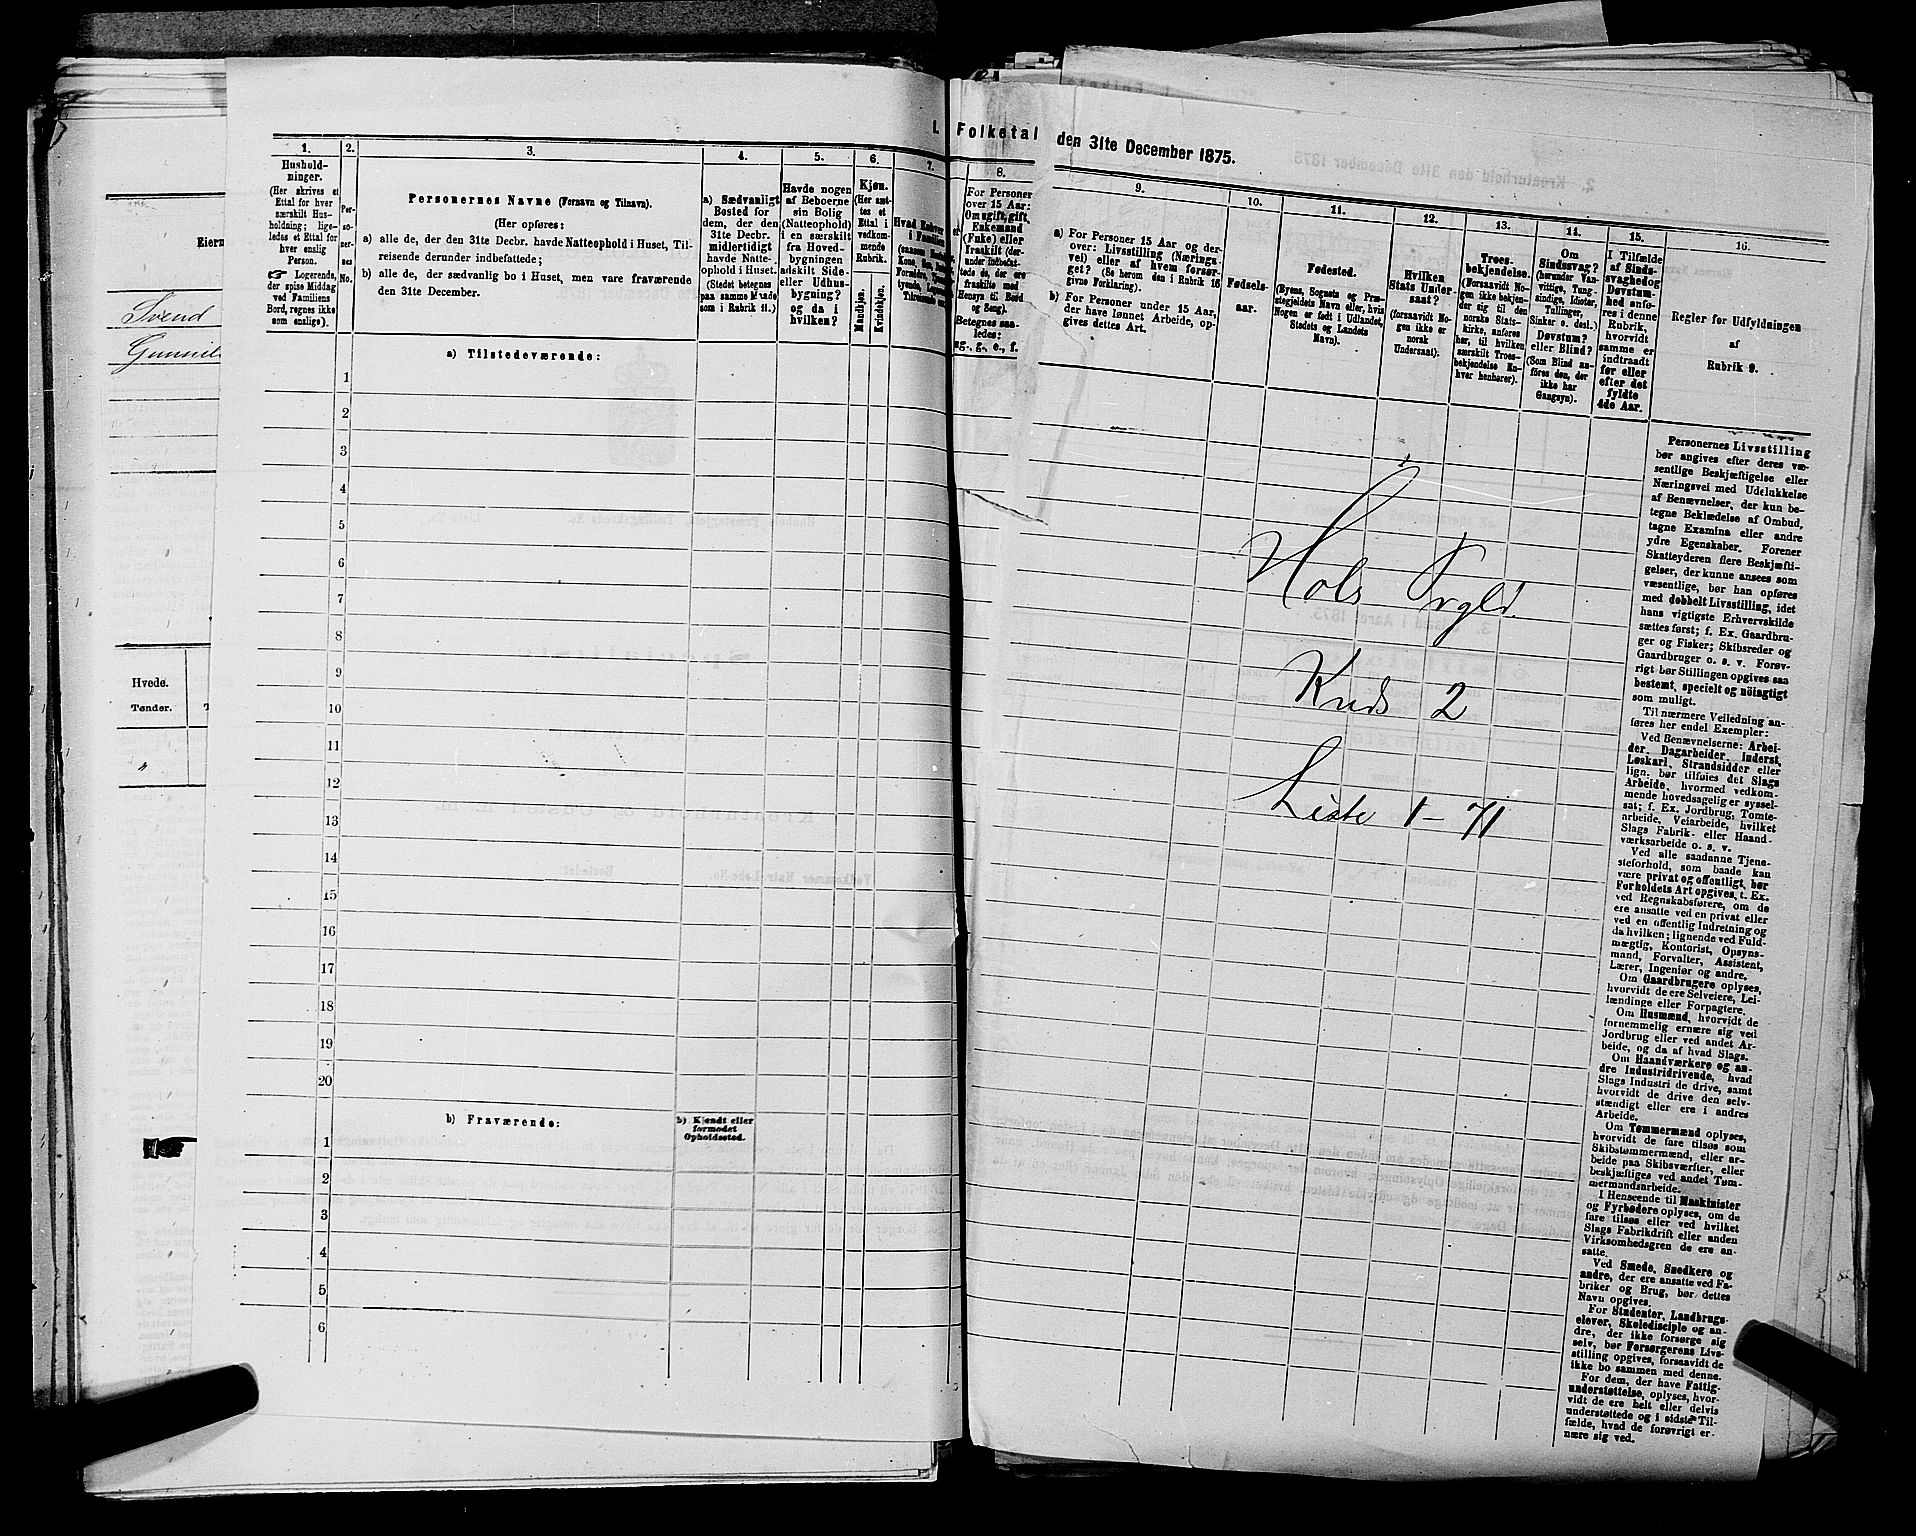 Eiern
Svend
Gunnil
Hvede.
Tønder.
I. Folketal den 31te December 1875.
1.
Hushold-
ninger.
(Her skrives et
Ettal for hver
særskilt Hus-
holdning; lige-
ledes et Ettal for
hver enslig
Person.
☞ Logerende,
der spise Middag
ved Familiens
Bord, regnes ikke
som enslige).
2.
Per-
so-
ner-
nes
No.
3.
Personernes Navne (Fornavn og Tilnavn).
(Her opføres:
a) alle de, der den 31te Decbr. havde Natteophold i Huset, Til-
reisende derunder indbefattede;
b) alle de, der sædvanlig bo i Huset, men vare fraværende
den 31te December.
4.
a) Sædvanligt
Bosted for
dem, der den
31te Decbr.
midlertidigt
havde Natte-
ophold i Huset.
(Stedet betegnes
paa samme Maade
som i Rubrik 11.)
5.
Havde nogen
af Beboerne
sin Bolig
(Natteophold)
i en særskilt
fra Hoved-
bygningen
adskilt Side-
eller Udhus-
bygning?
og da i
hvilken?
6.
Kjøn.
(Her sæt-
tes et
Ettal i
vedkom-
mende
Rubrik.
Mandkjøn.
Kvindekjøn.
7.
Hvad Enhver
i Familien
8.
For Personer
over 15 Aar:
Om ugift, gift,
Enkemand
(Enke) eller
fraskilt (der-
under indbefat-
tede de, der ere
fraskilte med
Hensyn til Bord
og Seng).
Betegnes saa-
ledes:
ug., g., e., f.
9.
a) For Personer 15 Aar og der-
over: Livsstilling (Nærings-
vei) eller af hvem forsør-
get? (Se herom den i Rubrik 16
givne Forklaring).
b) For Personer under 15 Aar,
der have lønnet Arbeide, op-
gives dettes Art.
10.
Fødsels-
aar.
11.
Fødested.
(Byens, Sognets og Præ-
stegjeldets Navn eller, hvis
Nogen er født i Udlandet,
Stedets og Landets
Navn).
12.
Hvilken
Stats Under-
saat?
(forsaavidt No-
gen ikke er
norsk
Undersaat).
13.
Troes-
bekjendelse.
(Forsaavidt No-
gen ikke bekjen-
der sig til den
norske Stats-
kirke, anføres
her, til hvilken
særskilt Troes-
bekjendelse En-
hver henhører).
14.
Om
Sindssvag?
(herunder Van-
vittige, Tung-
sindige, Idioter,
Tullinger,
Sinker o. desl.)
Døvstum?
eller Blind?
(Som Blind an-
føres den, der
ikke har
Gangsyn).
15.
I Tilfælde
af Sinds-
svaghed og
Døvstum-
hed anfø-
res i denne
Rubrik,
hvorvidt
samme er
indtraadt
før eller
efter det
fyldte
4de Aar.
16.
Regler for Udfyldningen
af
Rubrik 9.
a) Tilstedeværende:
1
2
3
4
5
6
7
8
9
10
11
12
13
14
15
16
17
18
19
20
b) Fraværende:
b) Kjendt eller
formodet
Opholdssted.
1
2
3
4
5
6
Hols
Kreds 2
Liste 1-71
Personernes Livsstilling
bør angives efter deres væ-
sentlige Beskjæftigelse eller
Næringsvei med Udelukkelse
af Benævnelser, der kun be-
tegne Beklædelse af Ombud,
tagne Examina eller andre
ydre Egenskaber. Forener
Skatteyderen flere Beskjæfti-
gelser, der kunne ansees som
væsentlige, bør han opføres
med dobbelt Livsstilling, idet
hans vigtigste Erhvervskilde
sættes først; f. Ex. Gaardbru-
ger og Fisker; Skibsreder og
Gaardbruger o. s. v. Forøv-
rigt bør Stillingen opgives saa
bestemt, specielt og nöiagtigt
som muligt.
Til nærmere Veiledning an-
føres her endel Exempler:
Ved Benævnelserne: Arbei-
der, Dagarbeider, Inderst,
Løskarl, Strandsidder eller
lign. bør tilføies det Slags
Arbeide, hvormed vedkom-
mende hovedsagelig er syssel-
sat; f. Ex. Jordbrug, Tomte-
arbeide, Veiarbeide, hvilket
Slags Fabrik- eller Haand-
værksarbeide o. s. v.
Ved alle saadanne Tjene-
steforhold, som baade kan
være privat og offentligt, bør
Forholdets Art opgives, t. Ex.
ved Regnskabsførere, om de
ere ansatte ved en privat eller
ved en offentlig Indretning og
da hvilken; lignende ved Fuld-
mægtig, Kontorist, Opsyns-
mand, Forvalter, Assistent,
Lærer, Ingeniør og andre.
Om Gaardbrugere oplyses,
hvorvidt de ere Selveiere, Lei-
lændinge eller Forpagtere.
Om Husmænd, hvorvidt de
fornemmelig ernære sig ved
Jordbrug eller ved andet Ar-
beide, og da af hvad Slags.
Om Haandværkere og an-
dre Industridrivende, hvad
Slags Industri de drive, samt
hvorvidt de drive den selv-
stændigt eller ere i andres
Arbeide.
Om Tømmermænd oplyses,
hvorvidt de fare tilsøs som
Skibstømmermænd, eller ar-
beide paa Skibsværfter, eller
beskjæftiges ved andet Tøm-
mermandsarbeide.
I Henseende til Maskinister
og Fyrbødere oplyses, om de
fare tilsøs eller ved hvilket
Slags Fabrikdrift eller anden
Virksomhedsgren de ere an-
satte.
Ved Smede, Snedkere og
andre, der ere ansatte ved Fa-
briker og Brug, bør dettes
Navn opgives.
For Studenter, Landbrugs-
elever, Skoledisciple og an-
dre, der ikke forsørge sig
selv, bør Forsørgerens Livs-
stilling opgives, forsaavidt de
ikke bo sammen med denne.
For dem, der have Fattig-
understøttelse, oplyses, hvor-
vidt de ere helt eller delvis
understøttede og i sidste Til-
fælde, hvad de forøvrigt er-
nære sig ved.